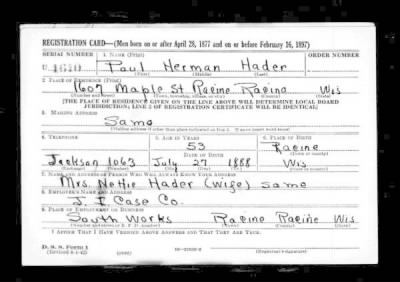 REGISTRATION CARD—(Men born on or after April 28, 1877 and on or before February 16, 1897)
SERIAL NUMBER 1. NAME (Print) ORDER NUMBER
U Paul Herman Hader
(First) (Middle) (Last)
2. PLACE OF RESIDENCE (Print)
1607 Maple St Racine Racine Wis
(Number and street) (Town, township, village, or city) (County) (State)
[THE PLACE OF RESIDENCE GIVEN ON THE LINE ABOVE WILL DETERMINE LOCAL BOARD
JURISDICTION; LINE 2 OF REGISTRATION CERTIFICATE WILL BE IDENTICAL]
3. MAILING ADDRESS
Same
(Mailing address if other than place indicated on line 2. If same insert word same)
4. TELEPHONE 5. AGE IN YEARS 6. PLACE OF BIRTH
53 Racine
DATE OF BIRTH (Town or county)
Jackson 1063 July 27 1888 Wis
(Exchange) (Number) (Mo.) (Day) (Yr.) (State or country)
7. NAME AND ADDRESS OF PERSON WHO WILL ALWAYS KNOW YOUR ADDRESS
Mrs. Nettie Hader (wife) same
8. EMPLOYER'S NAME AND ADDRESS
J. I Case Co.
9. PLACE OF EMPLOYMENT OR BUSINESS
South Works Racine Racine Wis.
(Number and street or R. F. D. number) (Town) (County) (State)
I AFFIRM THAT I HAVE VERIFIED ABOVE ANSWERS AND THAT THEY ARE TRUE.
D. S. S. Form 1
(Revised 4-1-42) (over)